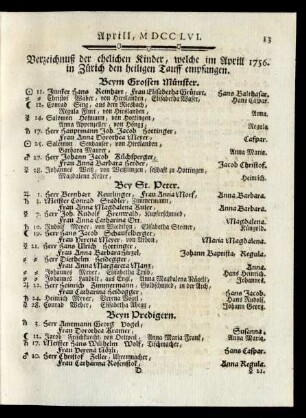 Aprill, MDCCLVI. 13
Verzeichnuß der ehelichen Kinder, welche im Aprill 1756.
in Zürich den heiligen Tauff empfangen.
Beym Grossen Münster.
11. Juncker Hans Reinhart, Frau Elisabetha Grüterr, Hans Balthasar.
Christof Wäber, von Hirslanden, Elisabetha Hans Caspar.
12. Conrad Sing, aus dem Riesbach,
Regula Thut, von Hirslanden, Anna.
14. Salomon Hofmann, von Hottingen,
Anna Appenzeller, von Höngg, Regula.
17. Herr Hauptmann Joh. Jacob Hottinger,
Frau Anna Dorothea Meyer, Caspar.
25. Salomon Senhauser, von Hirslanden,
Barbara Maurer, Anna Maria.
27. Herr Johann Jacob Büchsperger,
Frau Anna Barbara Herder, Jacob Christof.
28. Johannes Weiß, von Weißlingen, seßhaft zu Hottingen,
Magdalena Keller, Heinrich.
Bey St. Peter.
1. Herr Bernhart Reutlinger, Frau Anna Morf, Anna Barbara.
2. Meister Conrad Stadler, Zimmermann,
Frau Anna Magdalena Kuser, Anna Barbara.
7. Herr Joh. Rudolf Brennwald, Kupferschmied,
Frau Anna Catharina Ott, Magdalena.
10. Rudolf Meyer, von Wiedikon, Elisabetha Küngold.
19. Herr Hans Jacob Schaufelberger,
Frau Verena Meyer, von Urdorf, Maria Magdalena.
22. Herr Hans Ulrich Hottinger,
Frau Anna Barbara Johann Baptista Regula.
Herr Diethelm Heidegger,
Frau Anna Margareta Manz, Anna.
Johannes Meyer, Elisabetha Hans Heinrich.
Johannes aus Engi, Anna Magdalena Johannes.
22. Herr Heinrich Zimmermann, Goldschmied, in der Aich,
Frau Catharina Heidegger, Hans Jacob.
24. Heinrich Meyer, Verena Vogel, Hans Rudolf.
28. Conrad Weber, Elisabetha Johann Georg.
Beym Predigern.
3. Herr Amtmann Georg Vogel,
Frau Dorothea Kramer, Susanna.
11. Jacob von Oetweil, Anna Maria Frank, Anna Maria.
17. Meister Hans Wilhelm Wolf, Tischmacher,
Frau Verena Hans Caspar.
20. Herr Christof Zeller, Uhrenmacher,
Frau Catharina Rosenstok, Anna Regula.